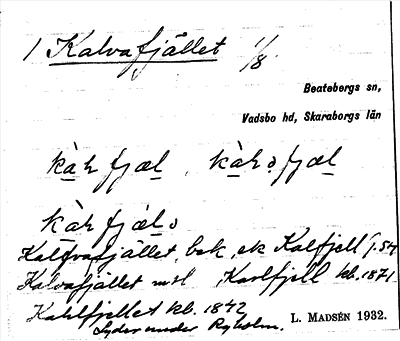 1 Kalvafjället 1/8
Beatebergs sn,
Vadsbo hd, Skaraborgs län
kàh fjæl , kàhəfjæl
kàh fjǽlə
Kalfvafjället, bek, ek Kalfjell J. 54
Kalvafjället mtl , Karlfjell kb. 1871
Kahlfjellet kb. 1842
Lyder under Ryholm.
L. MADSÉN 1932.